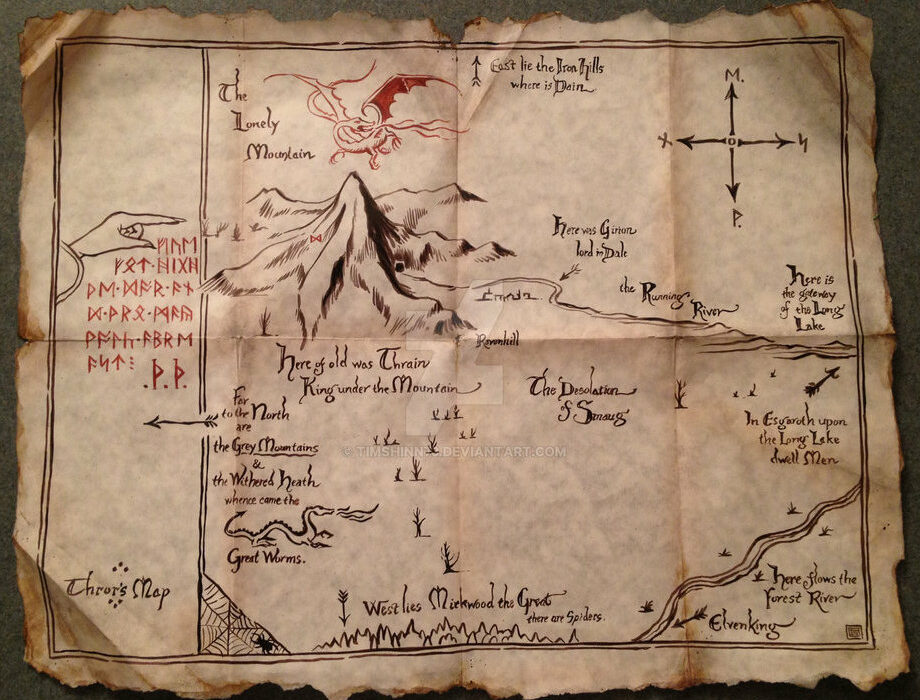 East lie the Iron Hills
where is Dain
The
Lonely
Mountain
ᛖ.
ᚾ
ᛋ
ᚹ.
ᚠᛁᚢᛖ
ᚻᛁᚷᚻ
ᚦᛖ·ᛞᚫᚱ·ᚫᚾ
ᛞ·ᛗᚫᚣ
ᚫᛒᚱᛖ
ᚫᛋᛏ⋮
.ᚦ.ᚦ.
ᛞ
Here was Girion
lord in Dale
the Running River
Here is
the gateway
of the Long
Lake
Ravenhill
Here of old was Thrain
King under the Mountain
The Desolation
of Smaug
Far
to the North
are
the Grey Mountains
&
the Withered Heath
whence came the
Great Worms.
In Esgaroth upon
the Long Lake
dwell Men
© TIMSHINN73.DEVIANTART.COM
Thror's Map
West lies Mirkwood the Great
there are Spiders.
Here flows the
Forest River
Elvenking